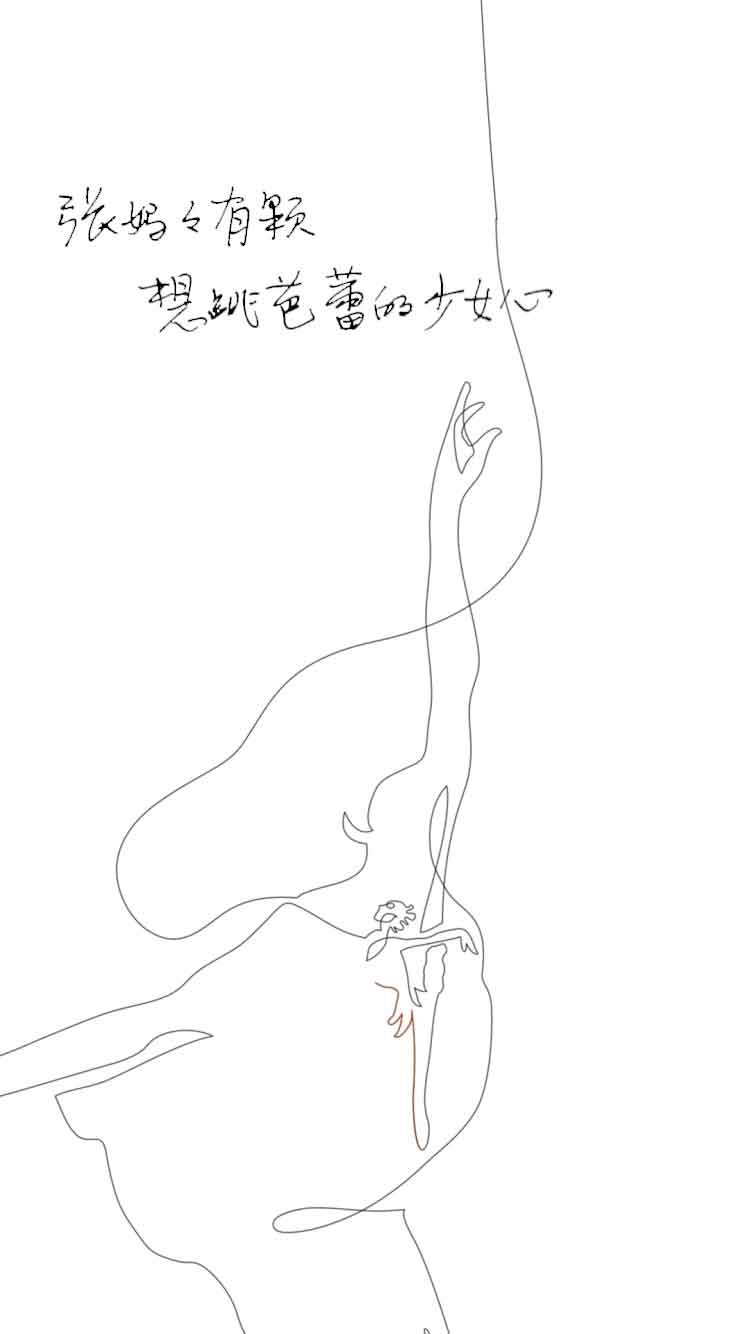 张妈々有颗
想跳芭蕾的少女心